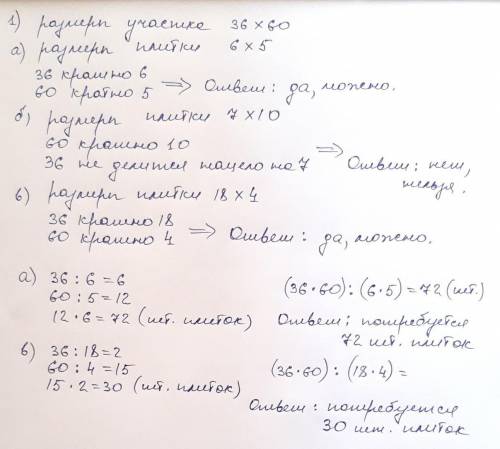 1) размеры участка 36 × 60
а) размеры плитки 6 × 5
36 кратно 6
60 кратно 5 ⇒ Ответ: да, можно.
б) размеры плитки 7 × 10
60 кратно 10
36 не делится нацело на 7 ⇒ Ответ: нет, нельзя.
в) размеры плитки 18 × 4
36 кратно 18
60 кратно 4 ⇒ Ответ: да, можно.
а) 36 : 6 = 6
60 : 5 = 12
12 · 6 = 72 (шт. плиток)
(36·60) : (6·5) = 72 (шт.)
Ответ: потребуется
72 шт. плиток
в) 36 : 18 = 2
60 : 4 = 15
15 · 2 = 30 (шт. плиток)
(36·60) : (18·4) =
Ответ: потребуется
30 шт. плиток